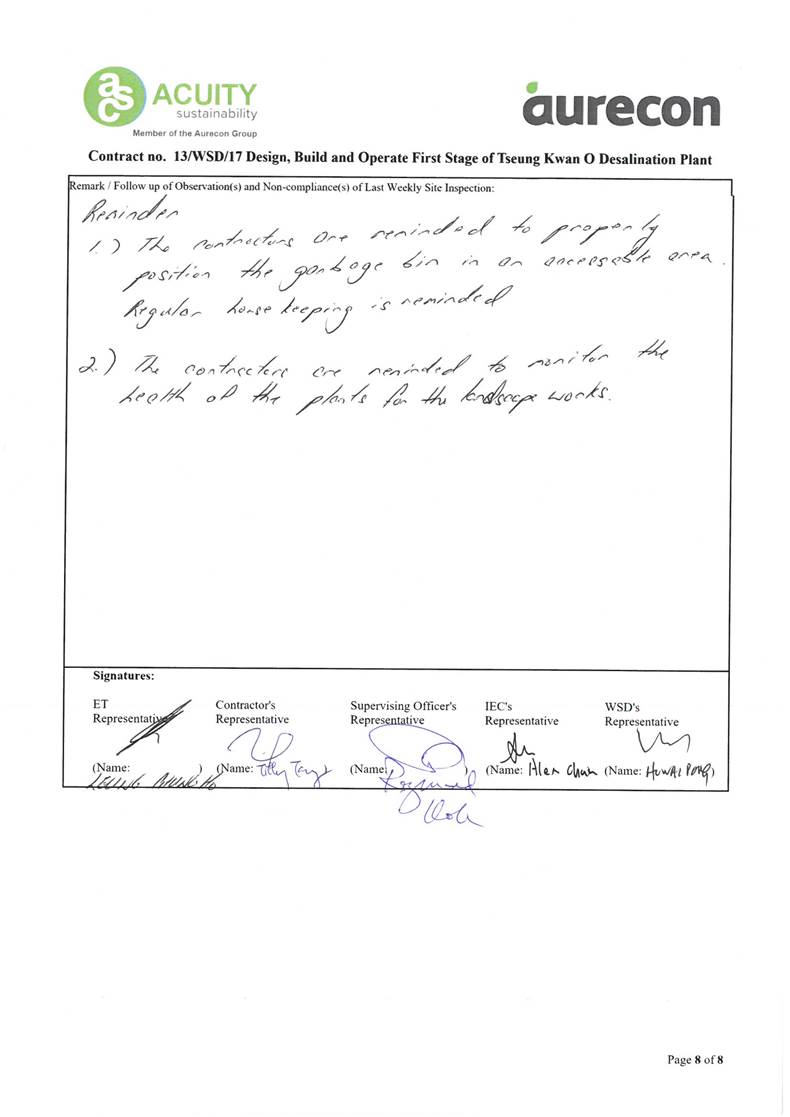 asc ACUITY
sustainability
Member of the Aurecon Group
aurecon
Contract no. 13/WSD/17 Design, Build and Operate First Stage of Tseung Kwan O Desalination Plant
Remark / Follow up of Observation(s) and Non-compliance(s) of Last Weekly Site Inspection:
Reminder
1.) The contractors are reminded to properly
position the garbage bin in an accessable area.
Regular house keeping is reminded
2.) The contractors are reminded to monitor the
health of the plants for the landscape works.
Signatures:
ET
Representative
Contractor's
Representative
Supervising Officer's
Representative
IEC's
Representative
WSD's
Representative
(Name: )
(Name:
(Name: )
(Name: Alex Chan
(Name: HUWAI PONG)
Page 8 of 8